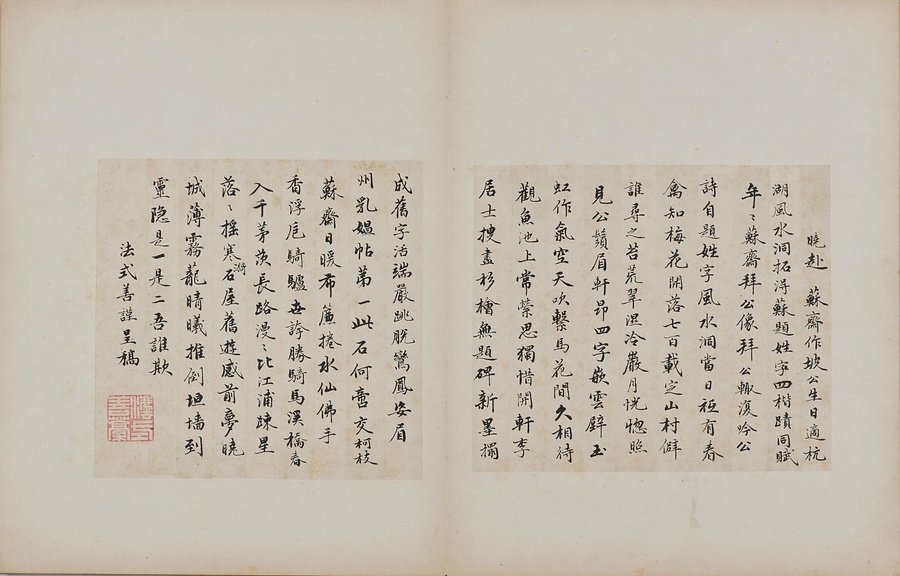 曉赴 蘇齋作坡公生日適杭
湖風水洞拓得蘇題姓字四楷蹟同賦
年〻蘇齋拜公像拜公輙復吟公
詩自題姓字風水洞當日祗有春
禽知梅花開落七百載定山村僻
誰尋之苔荒翠溼冷巖月恍惚照
見公鬚眉軒昂四字嵌雲壁玉
虹作氣空天吹繫馬花間久相待
觀魚池上常縈思獨惜開軒李
居士搜畫杉檜無題碑新墨搨
成舊字活端嚴跳脫鸞鳳姿眉
州乳媼帖第一此石何啻交柯枝
蘇齋日暖布簾捲水仙佛手
香浮卮騎驢毋誇勝騎馬溪橋春
入千茅茨長路漫〻比江浦踈星
落〻搖寒澌石屋舊遊感前夢曉
城薄霧蘢晴曦推倒垣墻到
靈隱是一是二吾誰欺
法式善謹呈稿